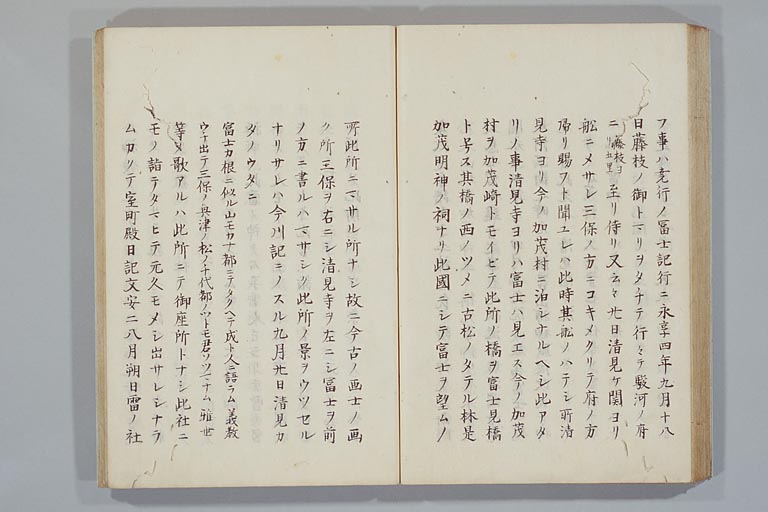 フ事ハ尭行ノ冨士記行ニ永享四年九月十八
日藤枝ノ御トマリヲタチテ行〻テ駿河ノ府
ニ藤枝ヨリ五里至リ侍リ又云々廿日清見ケ関ヨリ
船ニメサレ三保ノ方ニコキメクリテ府ノ方
帰リ賜フト聞ユレハ此時其船ノハテシ所清
見寺ヨリ今ノ加茂村ニ泊シナルヘシ此アタ
リノ事清見寺ヨリハ冨士ハ見エス今ノ加茂
村ヲ加茂崎トモイヒテ此所ノ橋ヲ冨士見橋
ト号ス其橋ノ西ノツメニ古松ノタテル林是
加茂明神ノ祠ナリ此國ニシテ冨士ヲ望ムノ
所此所ニマサル所ナシ故ニ今古ノ画士ノ画
ク所三保ヲ右ニシ清見寺ヲ左ニシ冨士ヲ前
ノ方ニ書ルハマサシク此所ノ景ヲウツセル
ナリサレハ今川記ニノスル九月廿日清見カ
タノウタニ
冨士カ根ニ似ル山モカナ都ニテタクヘテ成ト人ニ語ラム 義教
ウチ出テ三保ノ奥津ノ松ノ千代都ノツトモ君ソツマナム 雅世
等ノ歌アルハ此所ニテ御座所トナシ此社ニ
モノ詣テタマヒテ元久モメシ出サレシナラ
ムカクテ室町殿日記文安二八月朔日雷ノ社